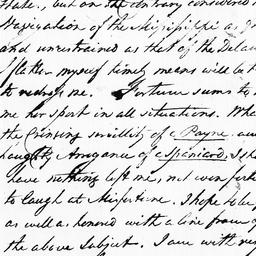 State, but on the contrary considered
Navigation of the Mississippi as
and unrestrained as that of the Delaw
flatter myself timely means will be t
to redress me. Fortune seems to
me her sport in all situations. Wha
the Cringing servility of a Payne, an
haughty Arrogance of a Spaniard, I sh
have nothing left me, not even
to laugh at Misfortune. I hope to be
as well as honored with a line from
the above subject. I am with